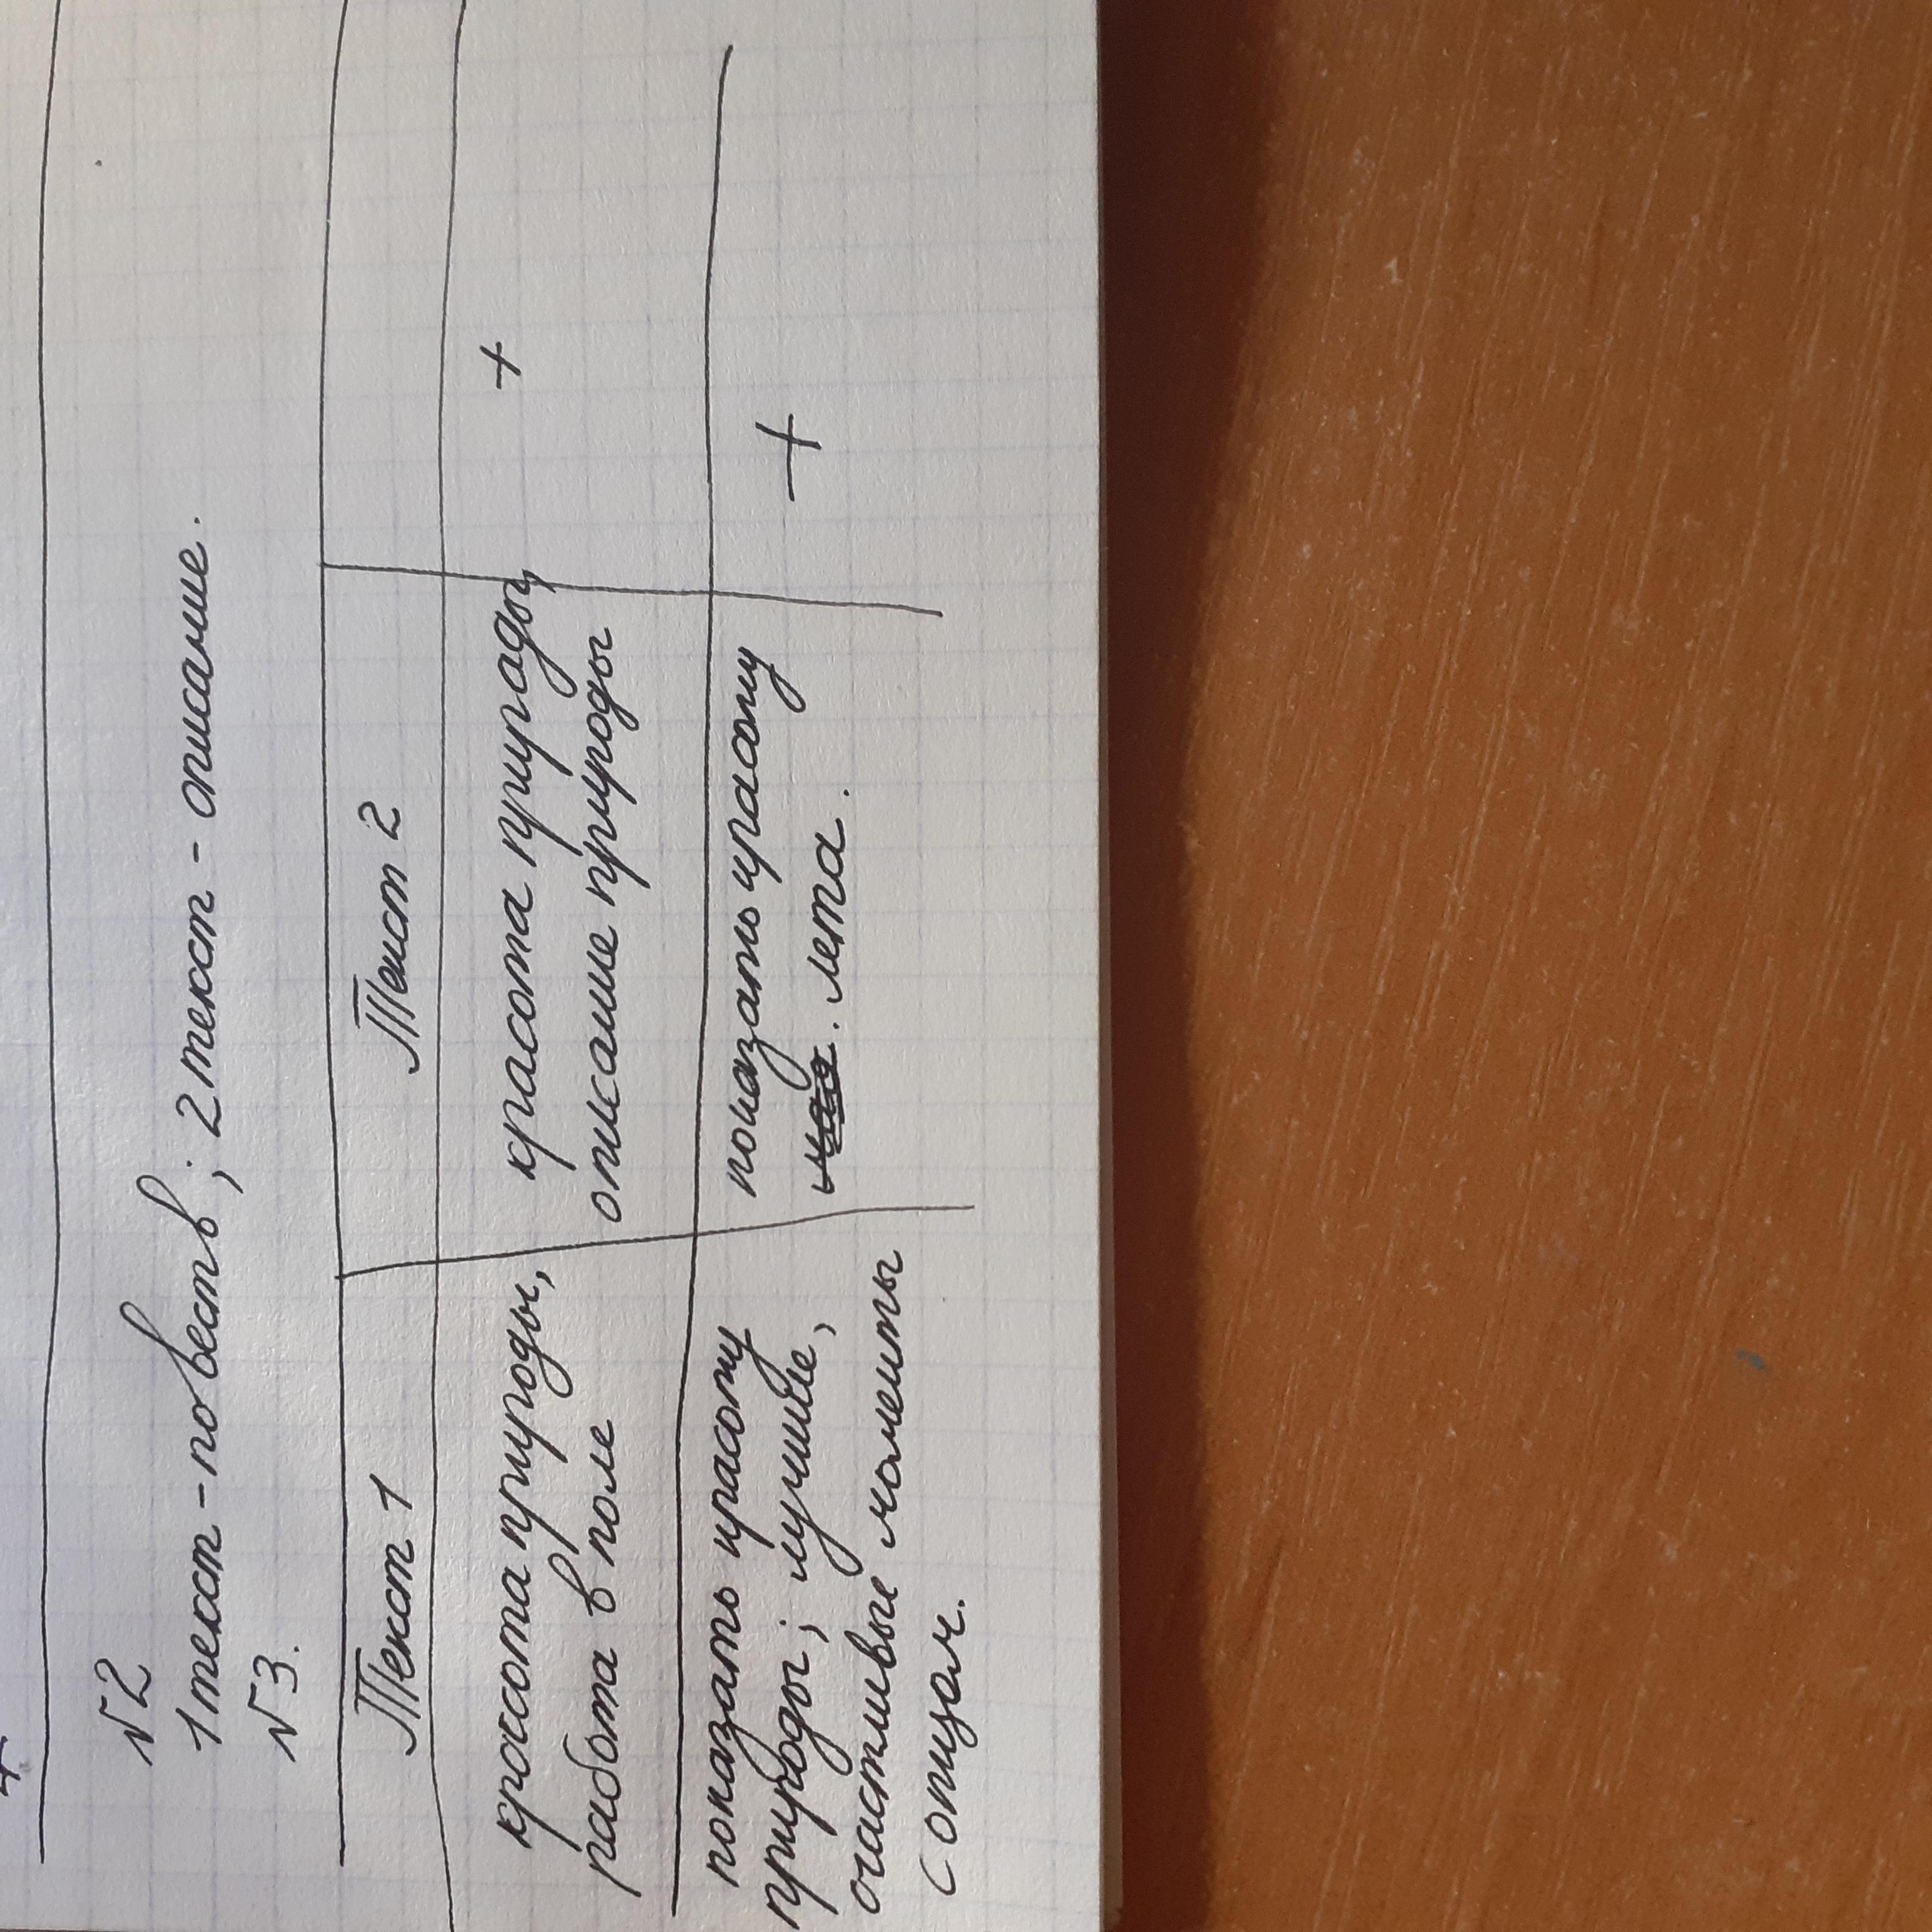 №2
1 текст - повеств; 2 текст - описание.
№3.
Текст 1 Текст 2
красота природы, красота природы, +
работа в поле описание природы
показать красоту показать красоту +
природы; лучшие, лета.
счастливые моменты
с отцом.